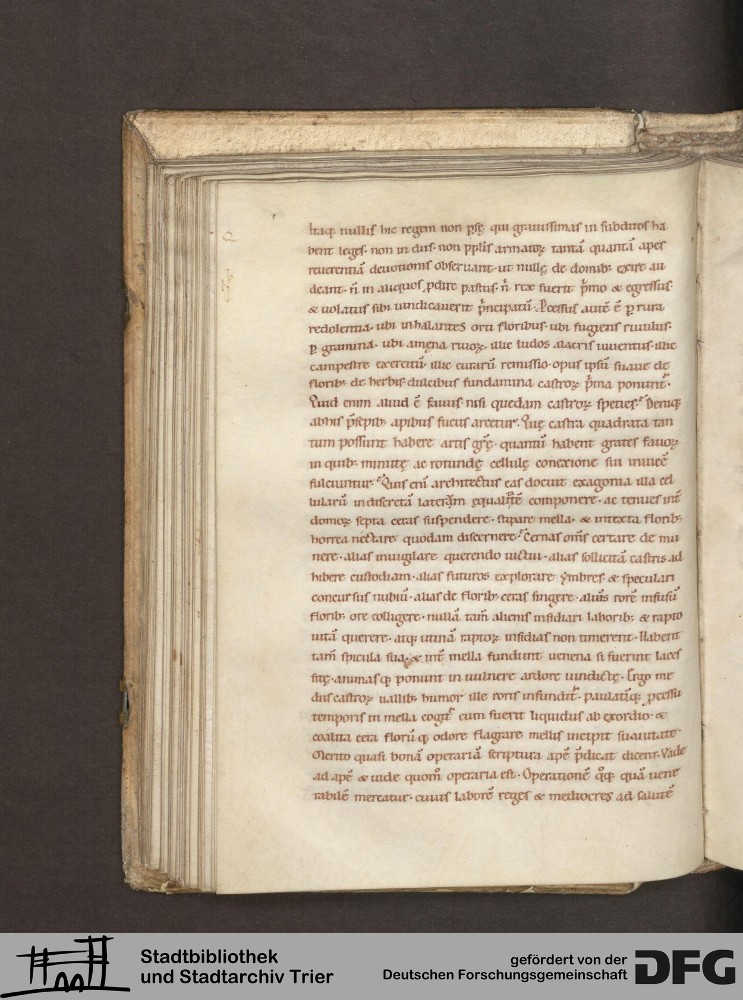 Itaq; nullis hic regem non psę qui grauissimas in subditos ha
bent leges. non indis. non pplis armatoꝝ tantā quantā apes
reuerentiā deuotionis obseruant. ut nullę de domib; exire au
deant. ñ in aliquos ꝓdire pastus. ñ rex fuerit pͥmo & egressus.
& uolatus sibi uindicauerit pͥncipatū. Pcessus autē ē ꝑ rura
redolentia. ubi inhalantes orti floribus. ubi fugiens riuulus.
ꝑ gramina. ubi amęna riuoꝝ. illic ludos alacris iuuentus. illic
campestre exercitiū. illic curarū remissio. opus ipsū suaue de
florib; de herbis dulcibus fundamina castroꝝ pͥma ponunt̃.
Quid enim aliud ē fauus nisi quedam castroꝝ species? Deniq;
abhis pͥsepib; apibus fucus arcetur. Quę castra quadrata tan
tum possunt habere artis & grę. quantū habent grates fauoꝝ
in quib; minutę ac rotundę cellulę conexione sui inuicē
fulciuntur? Quis eni architectus eas docuit exagonia illa cel
lularū indiscretā laterum equalitatē componere. ac tenues int̃
domoꝝ septa ceras suspendere. stipare mella. & intexta florib;
horrea nectare quodam discernere? Cernas om̃s certare de mu
nere. alias inuigilare querendo uictui. alias sollicitā castris ad
hibere custodiam. alias futuros explorare ymbres & speculari
concursus nubiū. alias de florib; ceras fingere. alias rorē infusū
florib; ore colligere. nullā tam̃ alienis insidiari laborib; & rapto
uitā querere. atq; utinā raptoꝝ insidias non timerent. Habent
tam̃ spicula sua. & int̃ mella fundunt uenena si fuerint laces
sitę. animasq; ponunt in uulnere ardore uindictę. Ergo me
diis castroꝝ uallib; humor ille roris infundit̃. paulatīq; pcessu
temporis in mella cogit̃ cum fuerit liquidus ab exordio. &
coalita cera florūq; odore flagrare mellis incipit suauitate.
Merito quasi bonā operariā scriptura apē p̄dicat dicens. Vade
ad apē & uide quom̃ operaria est. Operationē q̊q; quā uene
rabilē mercatur. cuius laborē reges & mediocres ad salutē
Stadtbibliothek
und Stadtarchiv Trier
gefördert von der
Deutschen Forschungsgemeinschaft
DFG